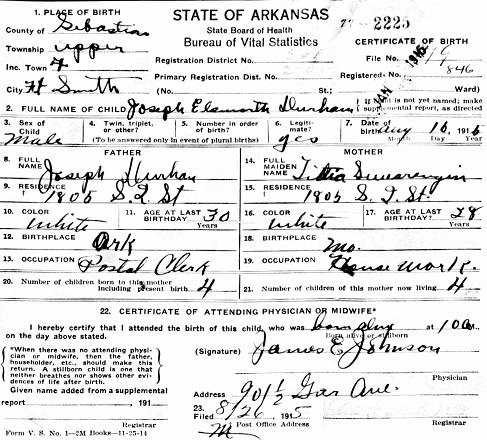 1. PLACE OF BIRTH
STATE OF ARKANSAS
2225
County of Sebastian
State Board of Health
Bureau of Vital Statistics
CERTIFICATE OF BIRTH
Township Upper
Registration District No.
File No. 19
Inc. Town
Primary Registration Dist. No.
Registered No. 846
JAN 1916
City Ft Smith (No. St.; Ward)
2. FULL NAME OF CHILD Joseph Elsworth Dunham
If child is not yet named; make supplemental report, as directed
3. Sex of Child Male
4. Twin, triplet, or other?
5. Number in order of birth?
(To be answered only in event of plural births)
6. Legitimate? yes
7. Date of birth Aug 10, 1915
Month Day Year
FATHER
MOTHER
8. FULL NAME Joseph Dunham
14. FULL MAIDEN NAME
9. RESIDENCE 1805 S. I St
15. RESIDENCE 1805 S. I St.
10. COLOR White
11. AGE AT LAST BIRTHDAY 30 Years
16. COLOR White
17. AGE AT LAST BIRTHDAY 28 Years
12. BIRTHPLACE Ark
18. BIRTHPLACE Mo.
13. OCCUPATION Postal Clerk
19. OCCUPATION House Work.
20. Number of children born to this mother Including present birth 4
21. Number of children of this mother now living 4
22. CERTIFICATE OF ATTENDING PHYSICIAN OR MIDWIFE*
I hereby certify that I attended the birth of this child, who was born alive at 10 a M.
Born alive or stillborn
on the day above stated.
*When there was no attending physician or midwife, then the father, householder, etc., should make this return. A stillborn child is one that neither breathes nor shows other evidences of life after birth.
(Signature) James E Johnson
Physician
Given name added from a supplemental
report , 191
Address 901 1/2 Gar Ave.
23. Filed 8/26 1915
Registrar
Post Office Address
Registrar
Form V. S. No. 1—2M Books—11-25-14